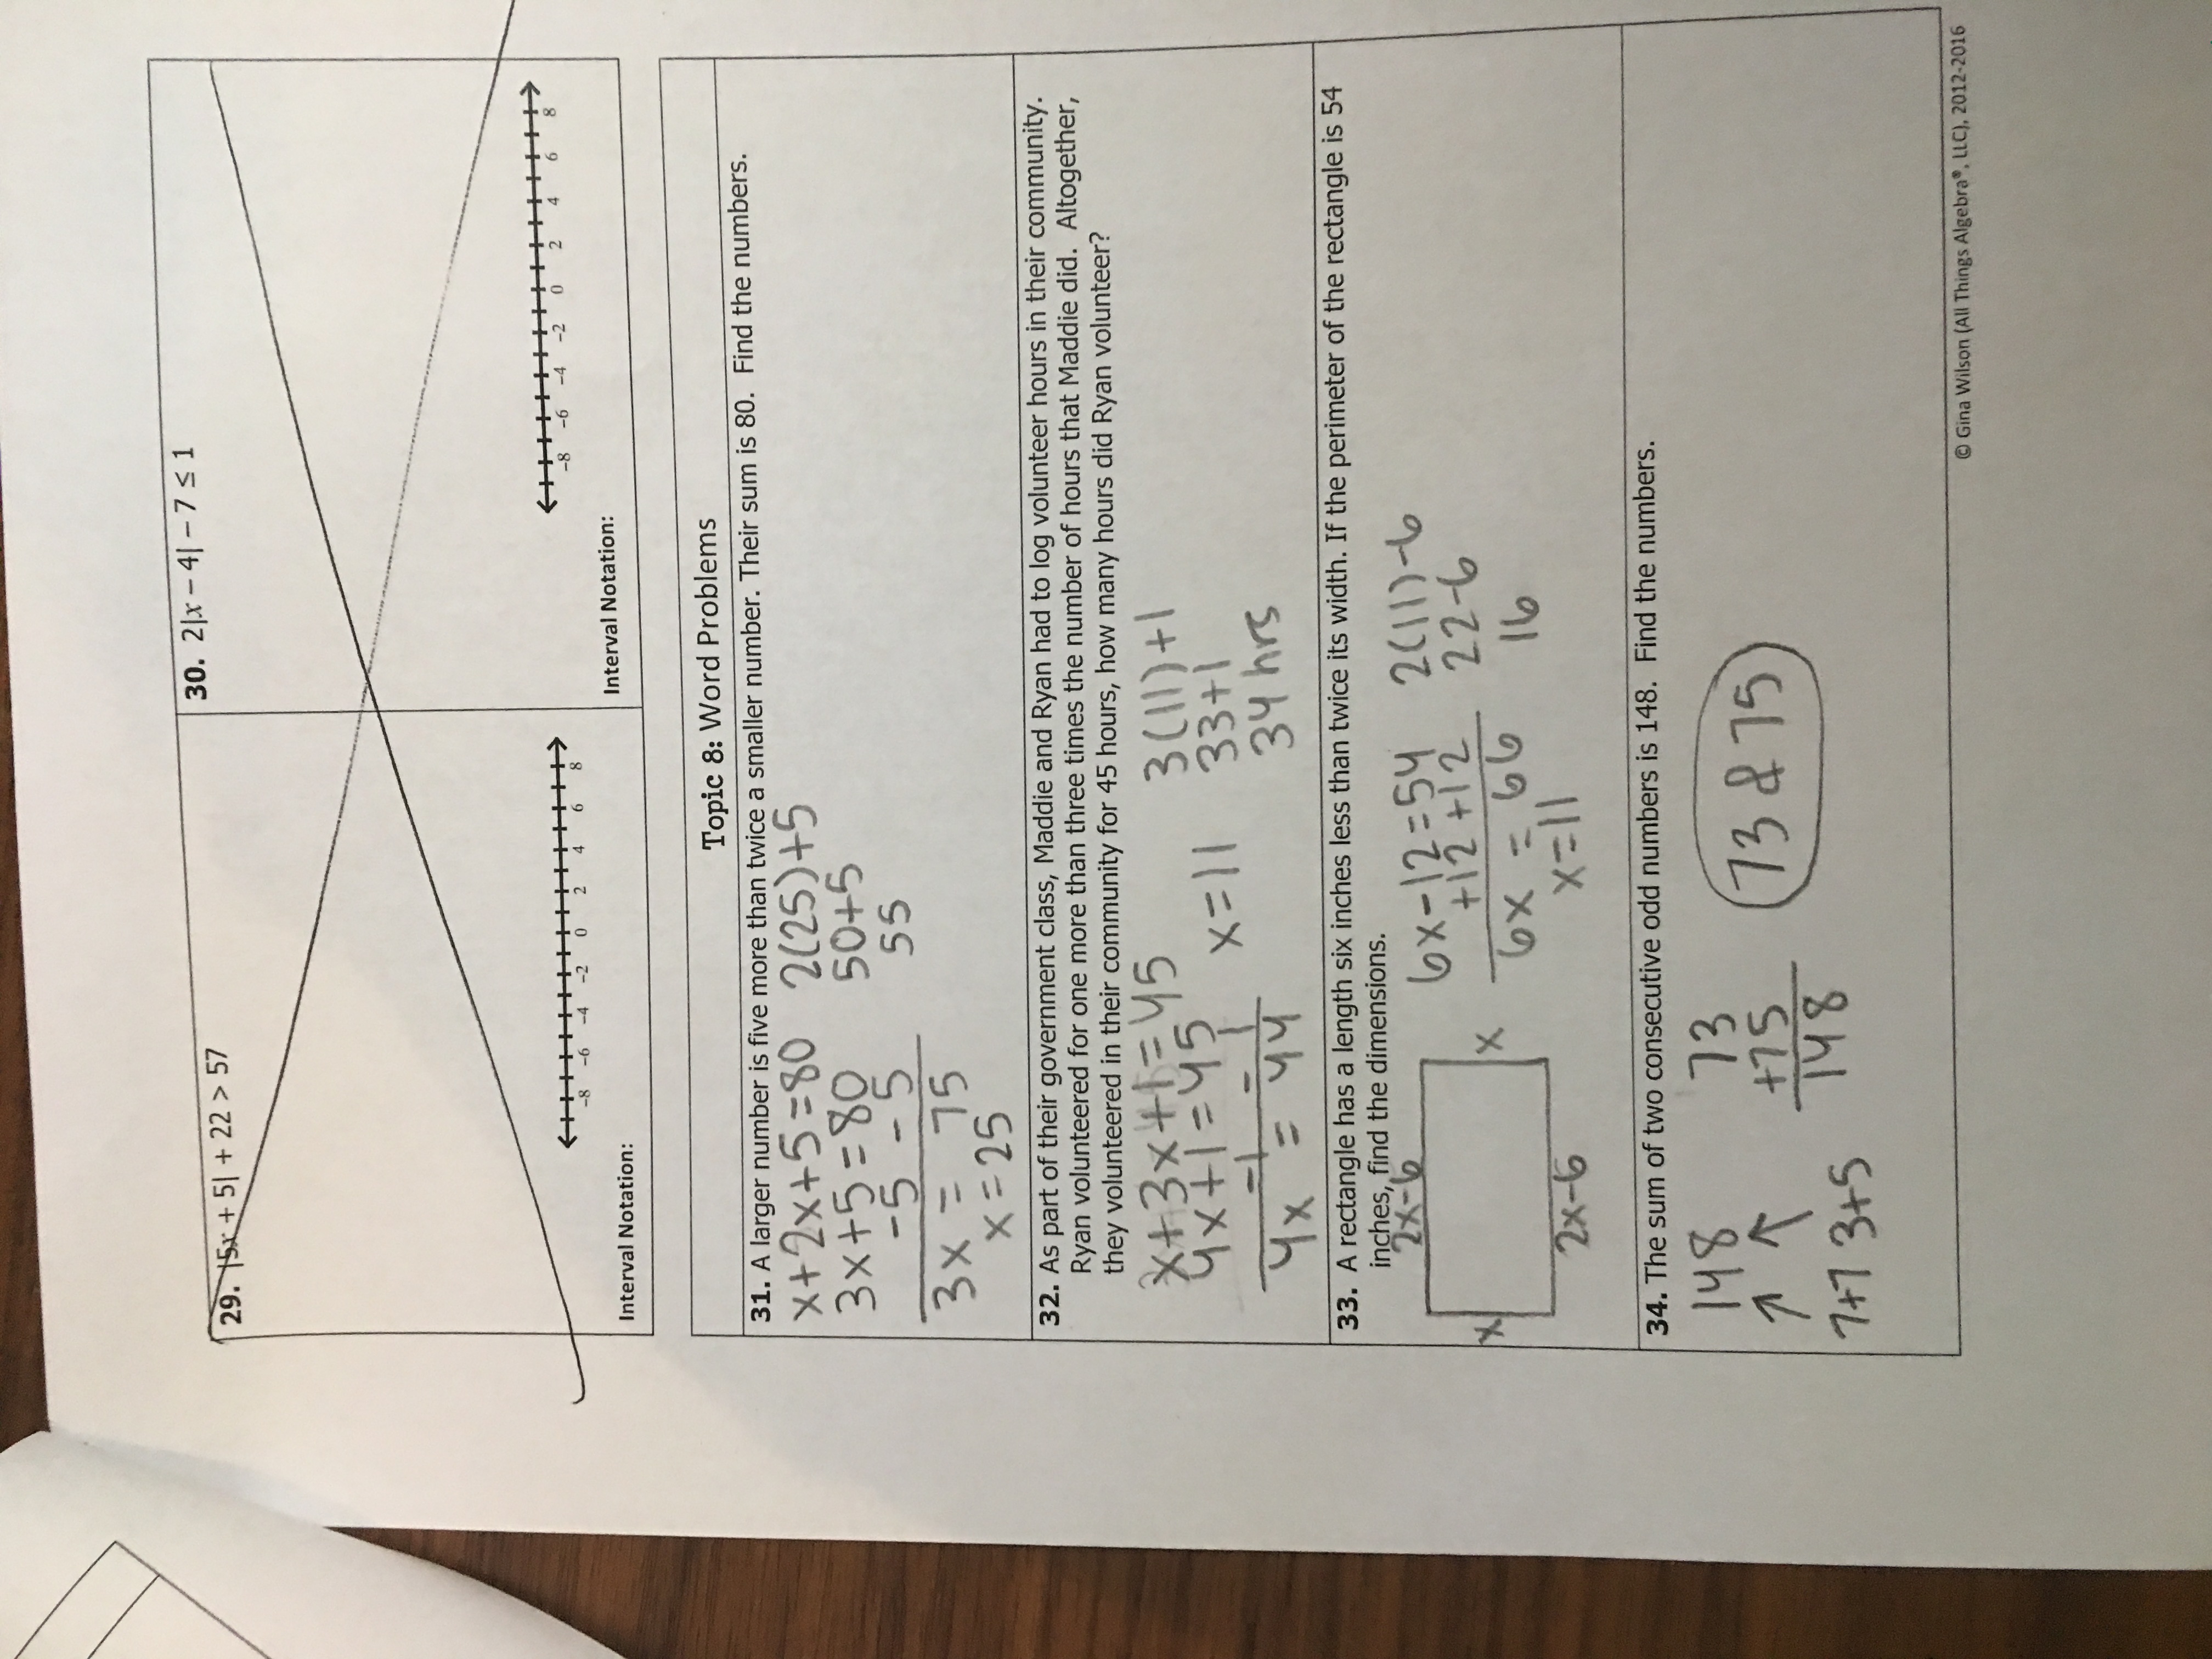 29. |5x + 5| + 22 > 57
30. 2|x – 4| – 7 ≤ 1
–8 –6 –4 –2 0 2 4 6 8
Interval Notation:
–8 –6 –4 –2 0 2 4 6 8
Interval Notation:
Topic 8: Word Problems
31. A larger number is five more than twice a smaller number. Their sum is 80. Find the numbers.
x+2x+5=80
3x+5=80
-5 -5
3x = 75
x=25
2(25)+5
50+5
55
32. As part of their government class, Maddie and Ryan had to log volunteer hours in their community.
Ryan volunteered for one more than three times the number of hours that Maddie did. Altogether,
they volunteered in their community for 45 hours, how many hours did Ryan volunteer?
x+3x+1=45
4x+1=45
-1 -1
4x = 44
x=11
3(11)+1
33+1
34 hrs
33. A rectangle has a length six inches less than twice its width. If the perimeter of the rectangle is 54
inches, find the dimensions.
2x-6
x
x
2x-6
6x-12=54
+12 +12
6x = 66
x=11
2(11)-6
22-6
16
34. The sum of two consecutive odd numbers is 148. Find the numbers.
148
7+7 3+5
73
+75
148
73 & 75
© Gina Wilson (All Things Algebra®, LLC), 2012-2016